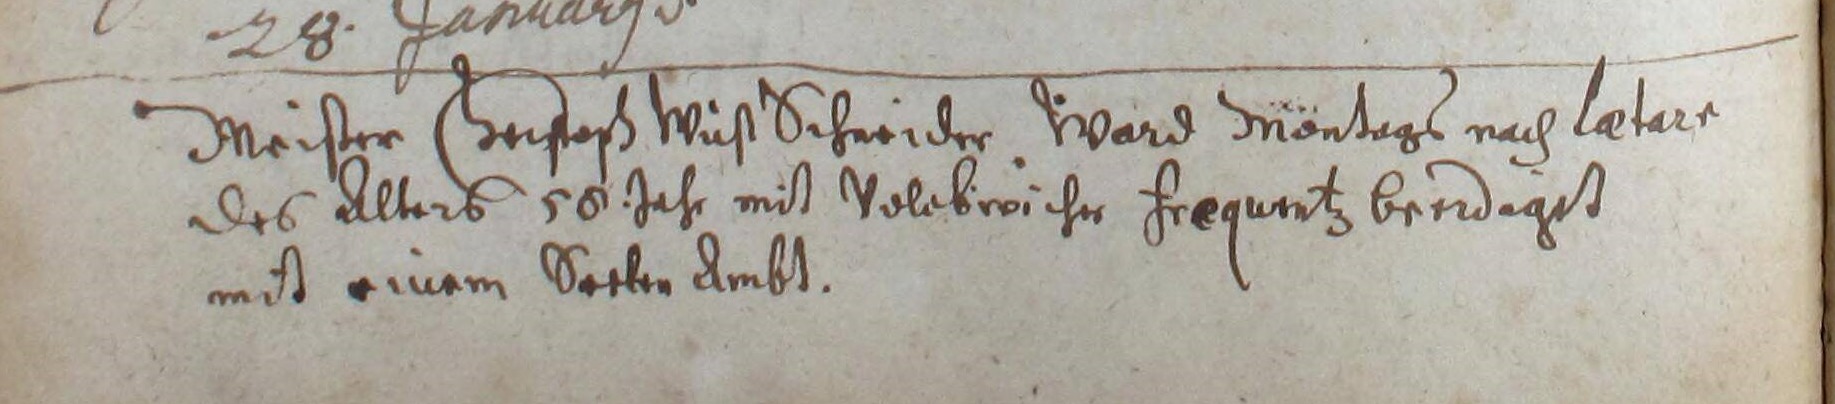 28. Januarÿ
Meister Christoph Wüst Schneider Ward Möntags nach Lætare
des Alters 58 Jahr mit Volckreicher frequentz beerdiget
mit einem Seelen Ambt.